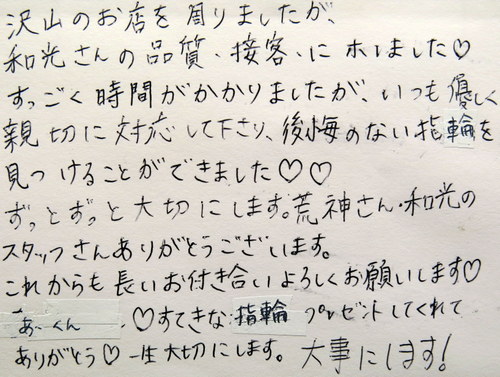 沢山のお店を周りましたが、
和光さんの品質、接客、にホレました♡
すっごく時間がかかりましたが、いつも優しく
親切に対応して下さり、後悔のない指輪を
見つけることができました♡♡
ずっとずっと大切にします。荒神さん・和光の
スタッフさんありがとうございます。
これからも長いお付き合いよろしくお願いします♡
あ〜くん ♡すてきな指輪プレゼントしてくれて
ありがとう♡一生大切にします。大事にします!